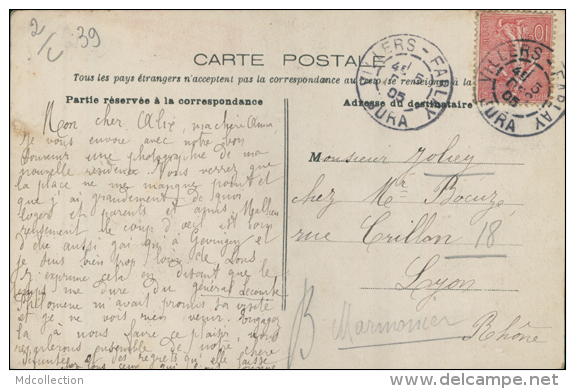 2/L 39
CARTE POSTALE
Tous les pays étrangers n'acceptent pas la correspondance au
se renseigner à la
Partie réservée à la correspondance
Adresse du destinataire
VILLERS-FARLAY
JURA
05
VILLERS-FARLAY
JURA
05
10
Mon cher Alix, ma chère Anna,
Je vous envoie avec notre bon
souvenir une photographie de ma
nouvelle résidence. Vous verrez que
la place ne me manque point et
que j'ai grandement de quoi
loger et parents et amis. Malheu
reusement le coup d'œil est loin
d'être aussi gai qu'à Gevingey et
je suis bien trop loin de Lons
Je exprime cela en disant que le
temps me dure du général Lecourbe
Philomène m'avait promis sa visite
et je ne vois rien venir. Engagez
la à nous faire ce plaisir, nous
reparlerons ensemble de notre chère
et des regrets qu'elle laisse
à tous ceux qui
Monsieur Joliey
chez Mr Bocuze
rue Crillon 18
Lyon
Rhône
B
Marmonier
Mdcollection
www.delcampe.net